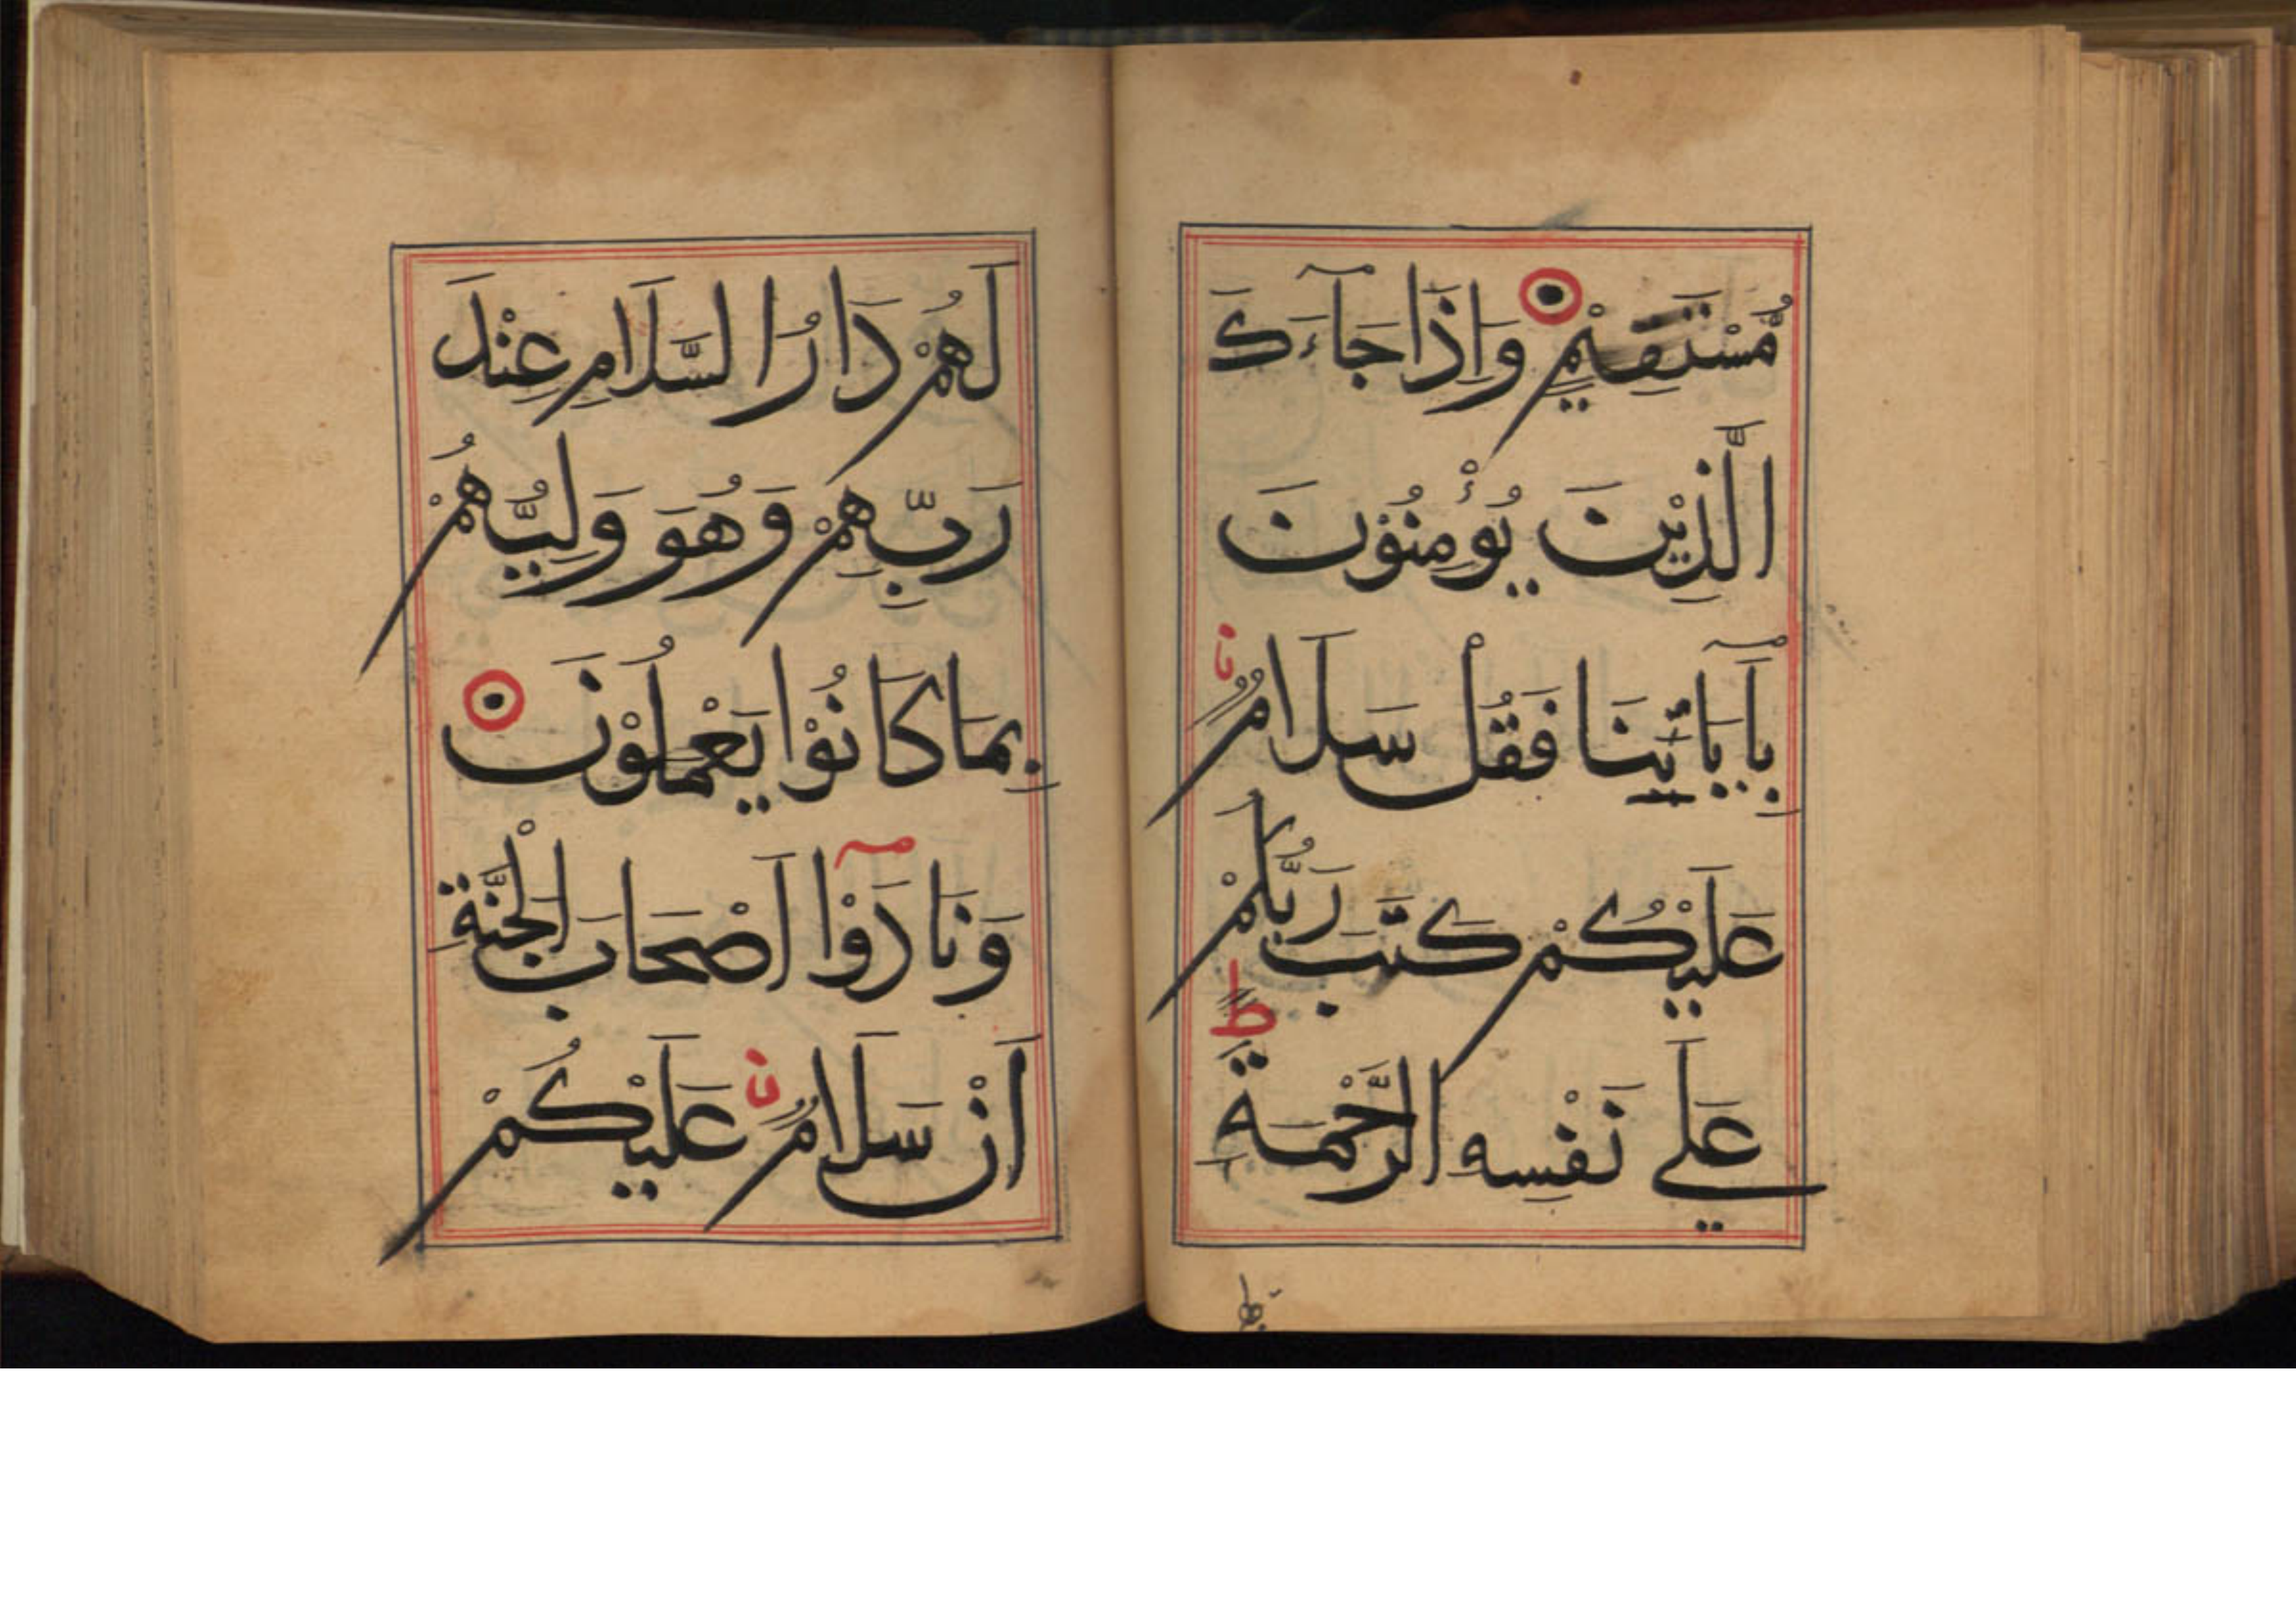 مُّسْتَقِيْمٍ وَاِذَا جَآءَكَ
الَّذِيْنَ يُؤْمِنُوْنَ
بِاٰيَاتِنَا فَقُلْ سَلَامٌ
عَلَيْكُمْ كَتَبَ رَبُّكُمْ
عَلَي نَفْسِهِ الرَّحْمَةَ
ط
لَهُمْ دَارُ السَّلَامِ عِنْدَ
رَبِّهِمْ وَهُوَ وَلِيُّهُمْ
بِمَا كَانُوْا يَعْمَلُوْنَ
وَنَادَوْا اَصْحَابَ الْجَنَّةِ
اَنْ سَلَامٌ عَلَيْكُمْ